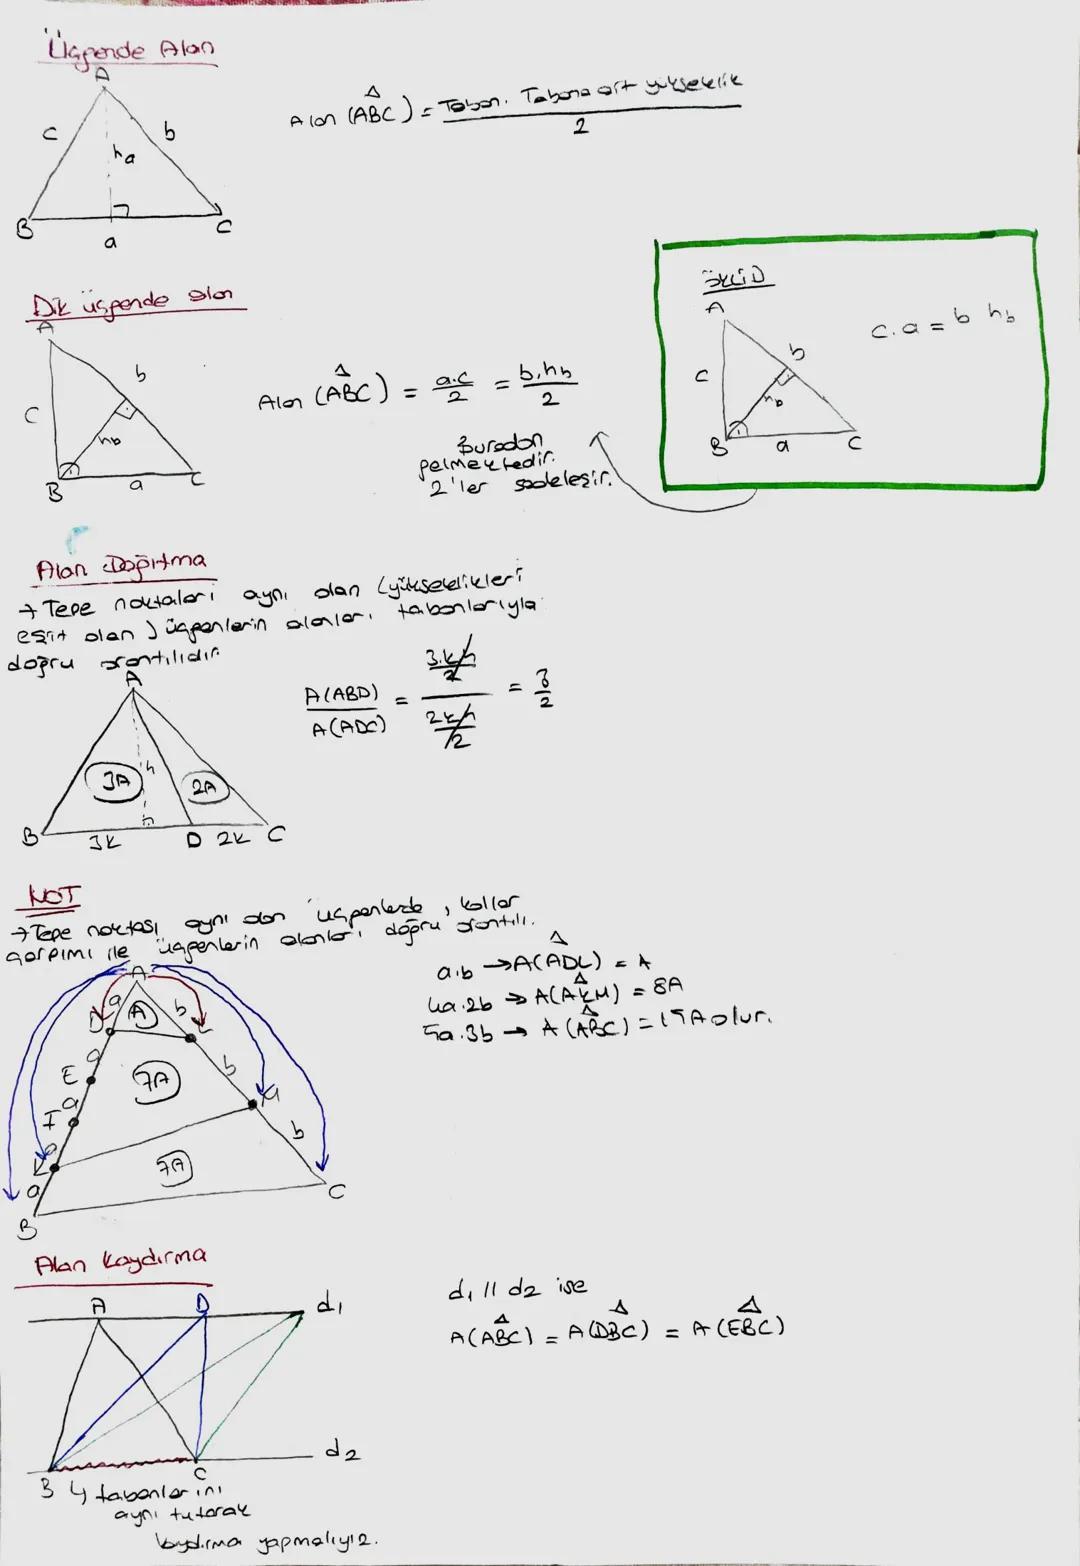 Üçgende Alan
A
c
b
ha
B
a
C
Alan (ABC) = Taban. Tabana ait yükseklik
2
Dik üçgende alan
A
b
c
hb
B
a
C
Alan (ABC) = a.c/2 = b.hb/2
Buradan
gelmektedir.
2'ler sadeleşir.
ÖKLİD
A
b
c
hb
B
a
C
c.a = b hb
Alan Dağıtma
→ Tepe noktaları aynı olan (yükseklikleri
eşit olan) üçgenlerin alanları tabanlarıyla
doğru orantılıdır.
A
3A
h
2A
B
3k
D
2k
C
A(ABD)/A(ADC) = (3.k.h/2)/(2k.h/2) = 3/2
NOT
→ Tepe noktası aynı olan üçgenlerde, kollar
çarpımı ile üçgenlerin alanları doğru orantılı.
a.b → A(ADL) = A
4a.2b → A(AKM) = 8A
5a.3b → A(ABC) = 15A olur.
A
a
b
A
D
L
a
b
E
7A
a
M
F
b
a
K
7A
a
C
B
Alan Kaydırma
A
D
d1
d2
B
C
d1 // d2 ise
A(ABC) = A(DBC) = A(EBC)
↳ tabanlarını
aynı tutarak
kaydırma yapmalıyız.